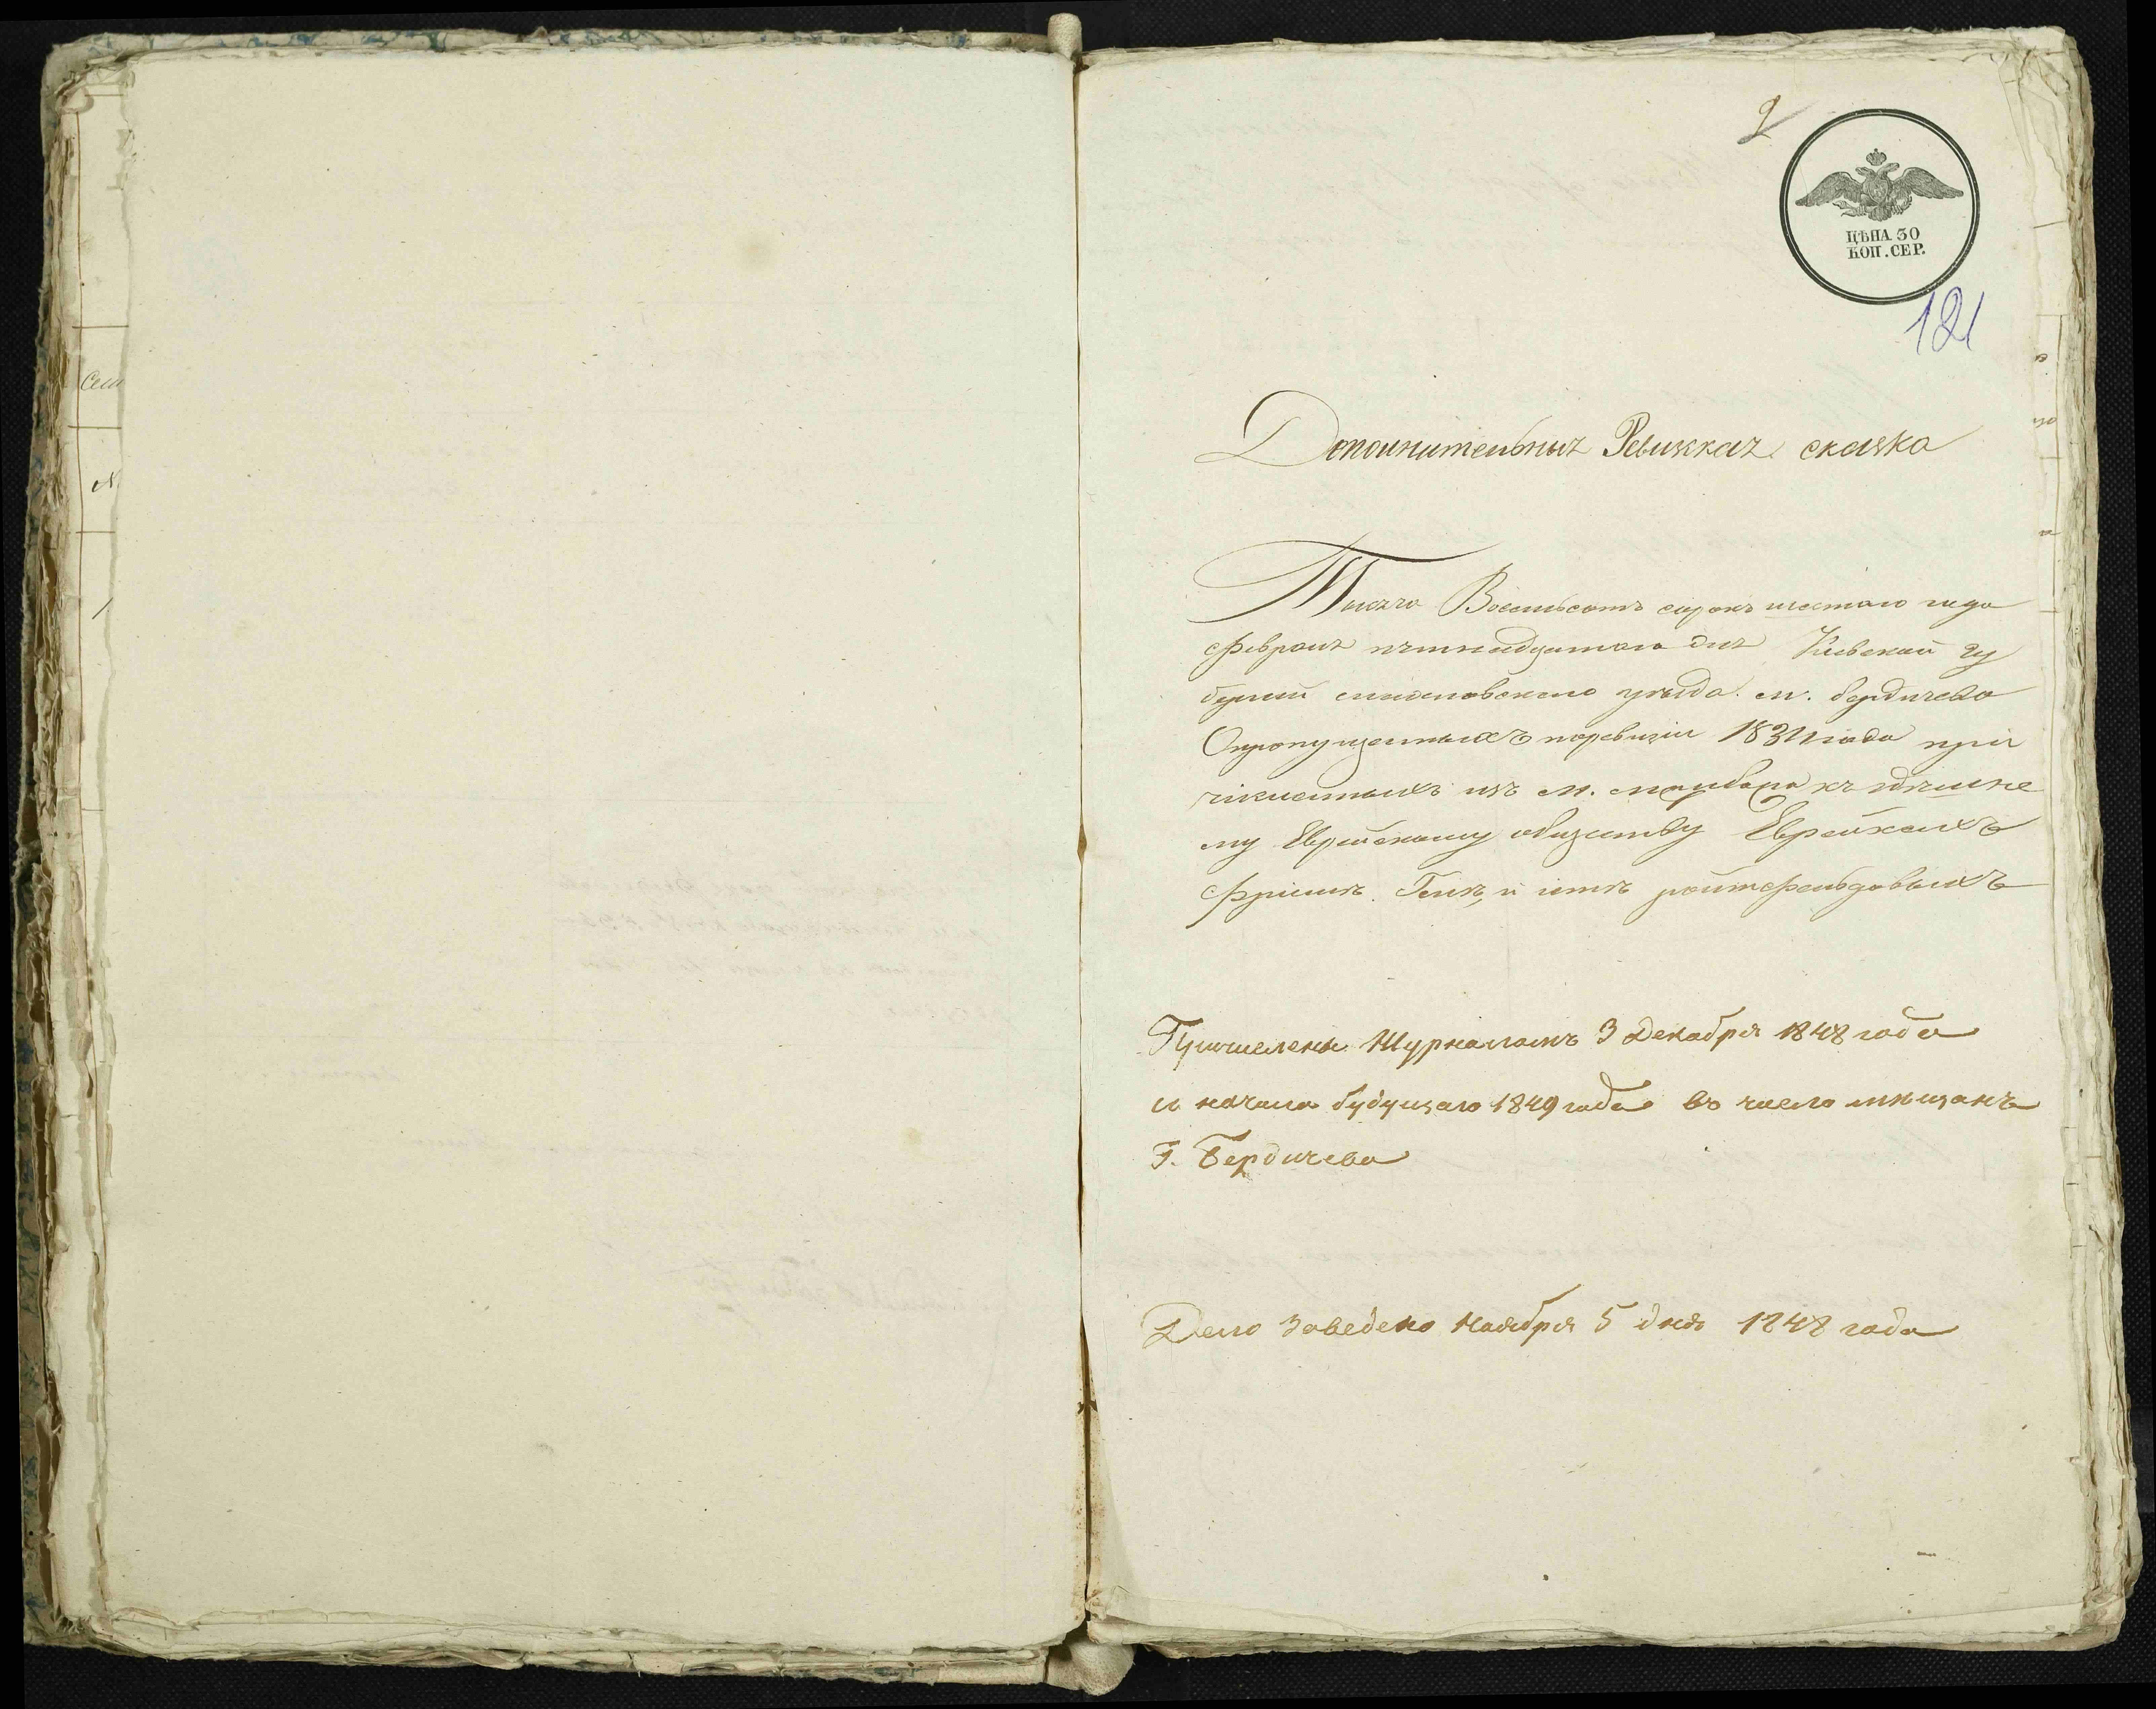 2
ЦѢНА 30
КОП. СЕР.
121
Дополнительная Ревижкая скаѕка
Тысяча Восемьсотъ сорокъ шестаго года
февраля пятнадцатаго дня Кіевской гу
берніи уѣзда. м. бердичева
О пропущенныхъ поревизіи 1834 года при
численныхъ изъ м. къ здѣшне
му Еврейскому обществу Еврейкахъ
и ройтфельдовыхъ
Причислены Журналомъ 3 декабря 1848 года
съ начала будущаго 1849 года въ число мѣщанъ
Г. Бердичева
Дело Заведено Ноября 5 дня 1848 года